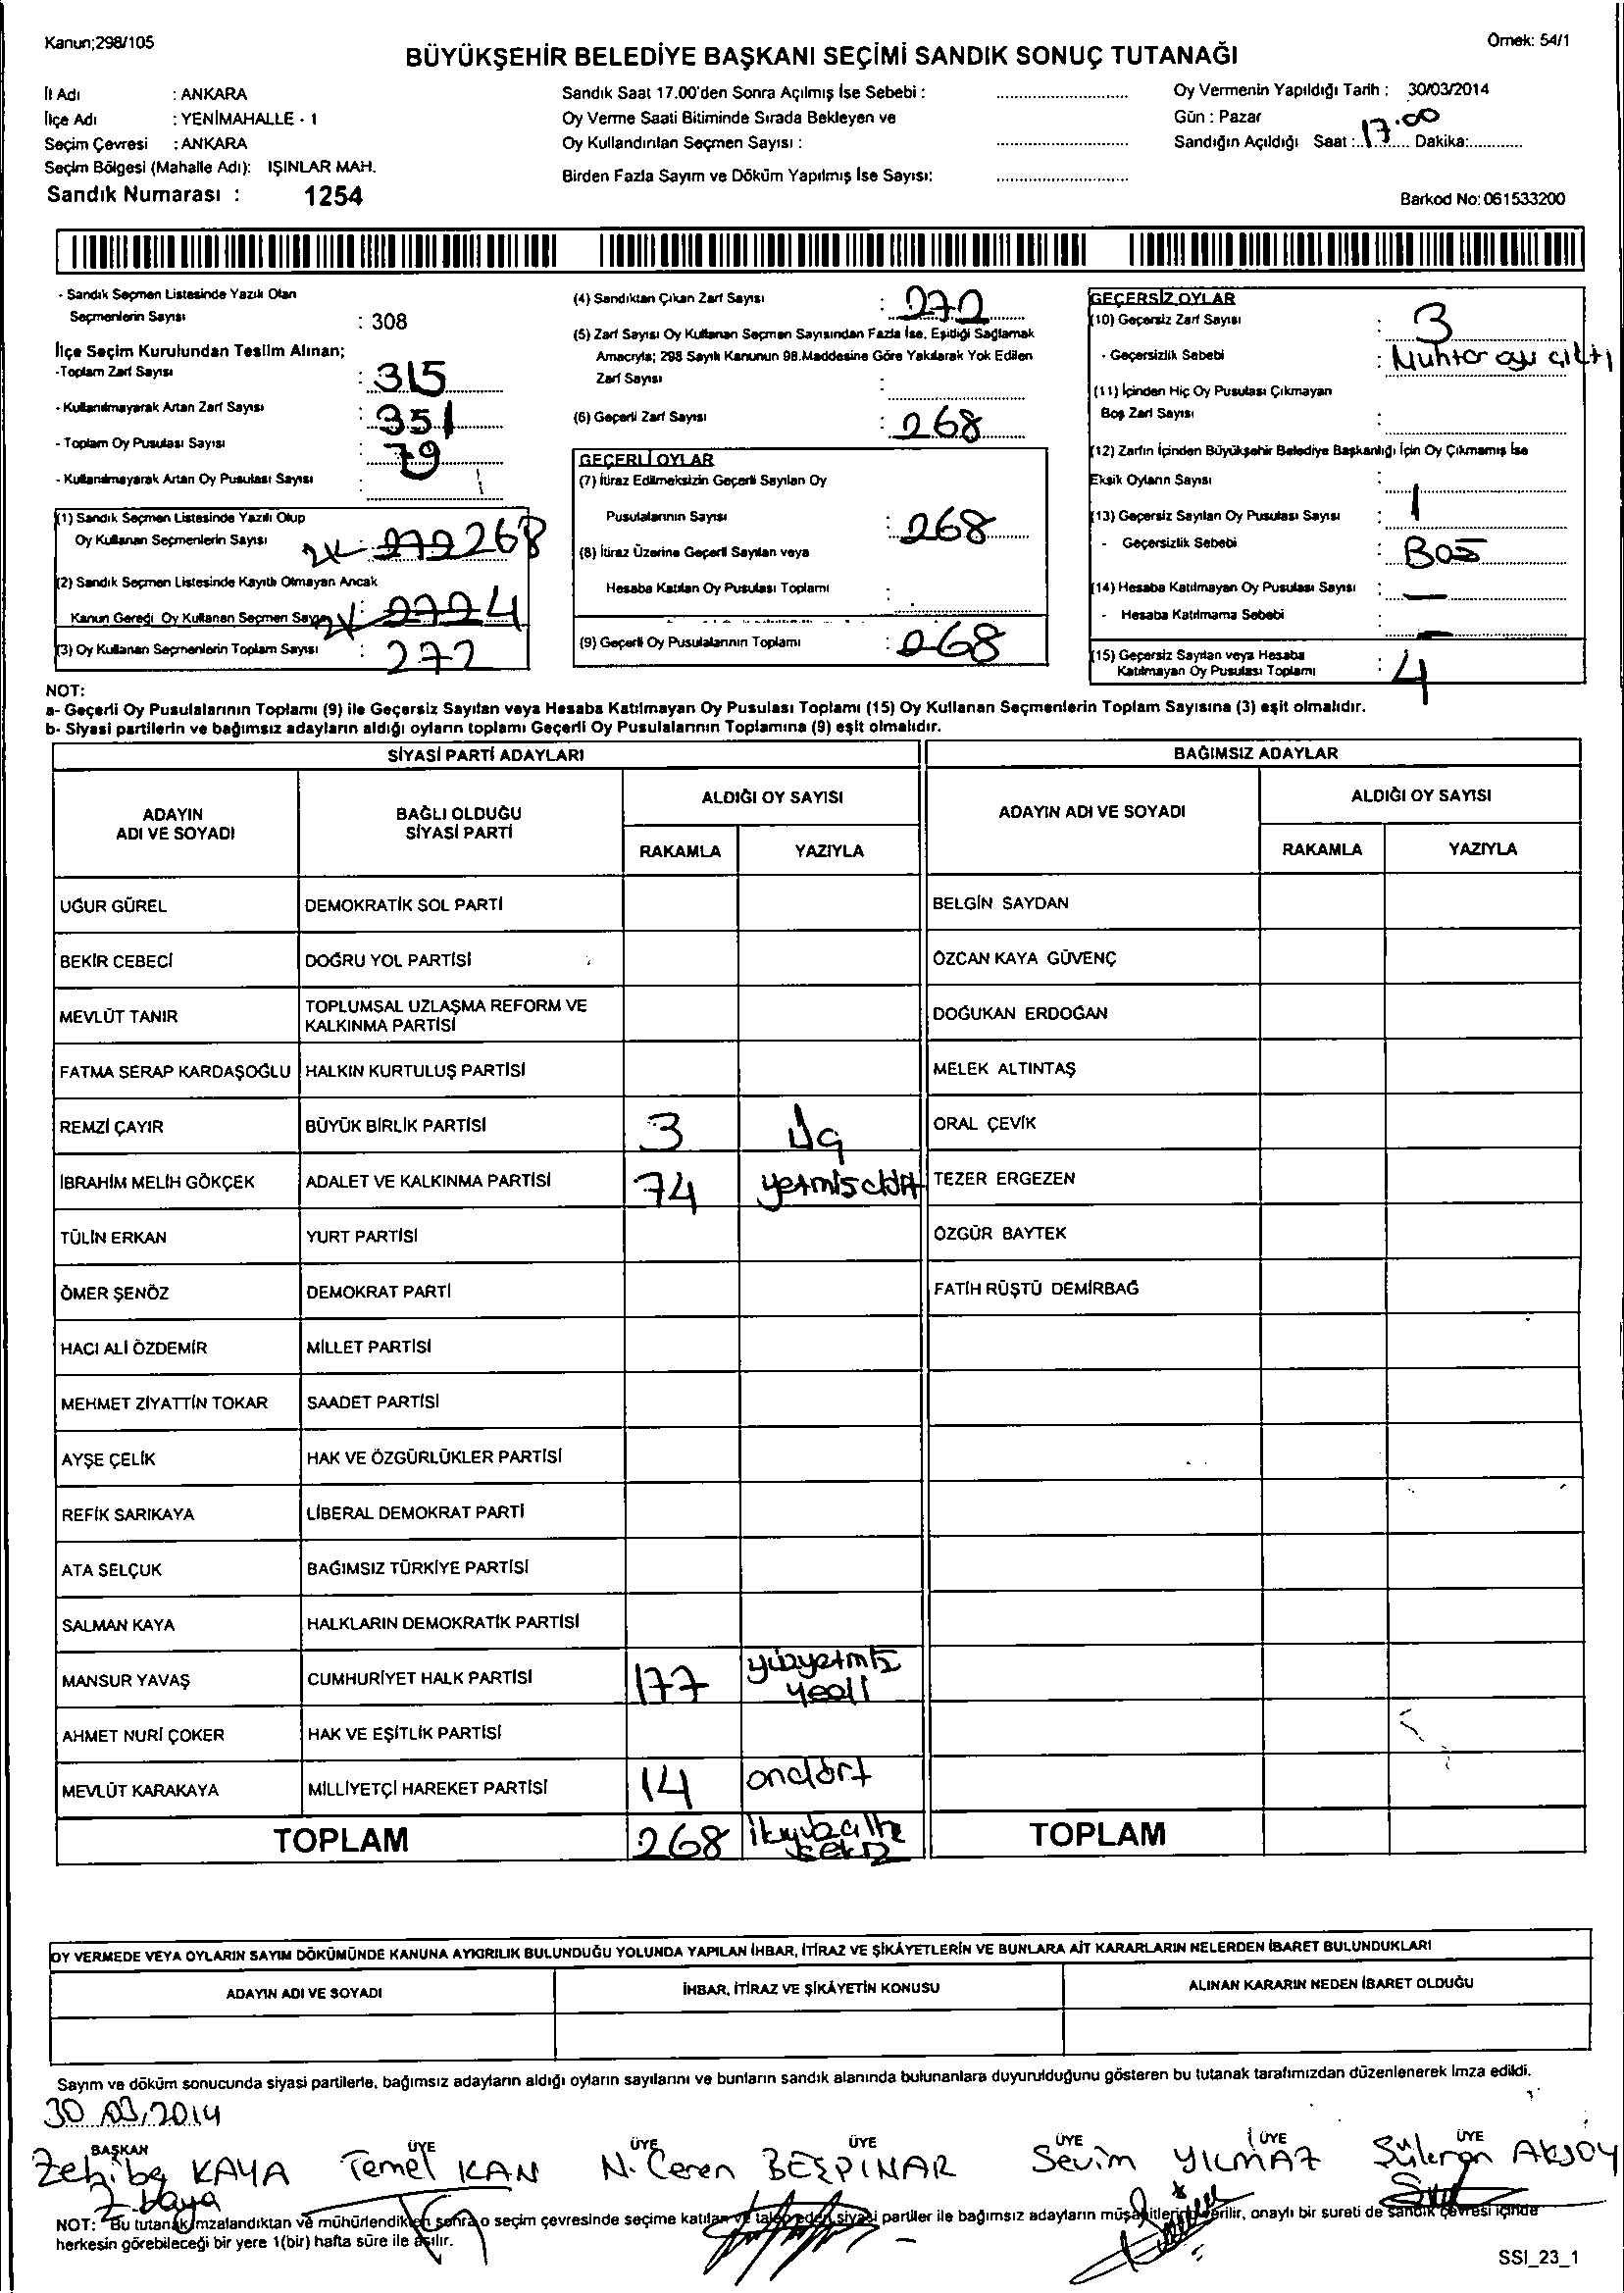 Kanun;298/105
Örnek: 54/1
BÜYÜKŞEHİR BELEDİYE BAŞKANI SEÇİMİ SANDIK SONUÇ TUTANAĞI
İl Adı : ANKARA
İlçe Adı : YENİMAHALLE - 1
Seçim Çevresi : ANKARA
Seçim Bölgesi (Mahalle Adı): IŞINLAR MAH.
Sandık Numarası : 1254
Sandık Saat 17.00'den Sonra Açılmış İse Sebebi :
Oy Verme Saati Bitiminde Sırada Bekleyen ve
Oy Kullandırılan Seçmen Sayısı :
Birden Fazla Sayım ve Döküm Yapılmış İse Sayısı:
Oy Vermenin Yapıldığı Tarih : 30/03/2014
Gün : Pazar
Sandığın Açıldığı Saat : 17.00 Dakika:
Barkod No: 061533200
- Sandık Seçmen Listesinde Yazılı Olan
Seçmenlerin Sayısı : 308
İlçe Seçim Kurulundan Teslim Alınan;
-Toplam Zarf Sayısı : 315
- Kullanılmayarak Artan Zarf Sayısı : 351
- Toplam Oy Pusulası Sayısı : 79
- Kullanılmayarak Artan Oy Pusulası Sayısı :
(1) Sandık Seçmen Listesinde Yazılı Olup
Oy Kullanan Seçmenlerin Sayısı 272 268
(2) Sandık Seçmen Listesinde Kayıtlı Olmayan Ancak
Kanun Gereği Oy Kullanan Seçmen Sayısı : 4
(3) Oy Kullanan Seçmenlerin Toplam Sayısı : 272
(4) Sandıktan Çıkan Zarf Sayısı : 272
(5) Zarf Sayısı Oy Kullanan Seçmen Sayısından Fazla İse, Eşitliği Sağlamak
Amacıyla; 298 Sayılı Kanunun 98.Maddesine Göre Yakılarak Yok Edilen
Zarf Sayısı :
(6) Geçerli Zarf Sayısı : 268
GEÇERLİ OYLAR
(7) İtiraz Edilmeksizin Geçerli Sayılan Oy
Pusulalarının Sayısı : 268
(8) İtiraz Üzerine Geçerli Sayılan veya
Hesaba Katılan Oy Pusulası Toplamı :
(9) Geçerli Oy Pusulalarının Toplamı : 268
GEÇERSİZ OYLAR
(10) Geçersiz Zarf Sayısı : 3
- Geçersizlik Sebebi : Muhtar oyu çıktı
(11) İçinden Hiç Oy Pusulası Çıkmayan
Boş Zarf Sayısı :
(12) Zarfın İçinden Büyükşehir Belediye Başkanlığı İçin Oy Çıkmamış İse
Eksik Oyların Sayısı :
(13) Geçersiz Sayılan Oy Pusulası Sayısı : 1
- Geçersizlik Sebebi : BOŞ
(14) Hesaba Katılmayan Oy Pusulası Sayısı : —
- Hesaba Katılmama Sebebi : —
(15) Geçersiz Sayılan veya Hesaba
Katılmayan Oy Pusulası Toplamı : 4
NOT:
a- Geçerli Oy Pusulalarının Toplamı (9) ile Geçersiz Sayılan veya Hesaba Katılmayan Oy Pusulası Toplamı (15) Oy Kullanan Seçmenlerin Toplam Sayısına (3) eşit olmalıdır.
b- Siyasi partilerin ve bağımsız adayların aldığı oyların toplamı Geçerli Oy Pusulalarının Toplamına (9) eşit olmalıdır.
SİYASİ PARTİ ADAYLARI
BAĞIMSIZ ADAYLAR
ADAYIN ADI VE SOYADI
BAĞLI OLDUĞU SİYASİ PARTİ
ALDIĞI OY SAYISI
RAKAMLA YAZIYLA
ADAYIN ADI VE SOYADI
ALDIĞI OY SAYISI
RAKAMLA YAZIYLA
UĞUR GÜREL DEMOKRATİK SOL PARTİ BELGİN SAYDAN
BEKİR CEBECİ DOĞRU YOL PARTİSİ ÖZCAN KAYA GÜVENÇ
MEVLÜT TANIR TOPLUMSAL UZLAŞMA REFORM VE KALKINMA PARTİSİ DOĞUKAN ERDOĞAN
FATMA SERAP KARDAŞOĞLU HALKIN KURTULUŞ PARTİSİ MELEK ALTINTAŞ
REMZİ ÇAYIR BÜYÜK BİRLİK PARTİSİ 3 üç ORAL ÇEVİK
İBRAHİM MELİH GÖKÇEK ADALET VE KALKINMA PARTİSİ 74 yetmişdört TEZER ERGEZEN
TÜLİN ERKAN YURT PARTİSİ ÖZGÜR BAYTEK
ÖMER ŞENÖZ DEMOKRAT PARTİ FATİH RÜŞTÜ DEMİRBAĞ
HACI ALİ ÖZDEMİR MİLLET PARTİSİ
MEHMET ZİYATTİN TOKAR SAADET PARTİSİ
AYŞE ÇELİK HAK VE ÖZGÜRLÜKLER PARTİSİ
REFİK SARIKAYA LİBERAL DEMOKRAT PARTİ
ATA SELÇUK BAĞIMSIZ TÜRKİYE PARTİSİ
SALMAN KAYA HALKLARIN DEMOKRATİK PARTİSİ
MANSUR YAVAŞ CUMHURİYET HALK PARTİSİ 177 yüzyetmiş yedi
AHMET NURİ ÇOKER HAK VE EŞİTLİK PARTİSİ
MEVLÜT KARAKAYA MİLLİYETÇİ HAREKET PARTİSİ 14 ondört
TOPLAM 268 TOPLAM
OY VERMEDE VEYA OYLARIN SAYIM DÖKÜMÜNDE KANUNA AYKIRILIK BULUNDUĞU YOLUNDA YAPILAN İHBAR, İTİRAZ VE ŞİKÂYETLERİN VE BUNLARA AİT KARARLARIN NELERDEN İBARET BULUNDUKLARI
ADAYIN ADI VE SOYADI İHBAR, İTİRAZ VE ŞİKÂYETİN KONUSU ALINAN KARARIN NEDEN İBARET OLDUĞU
Sayım ve döküm sonucunda siyasi partilerle, bağımsız adayların aldığı oyların sayılarını ve bunların sandık alanında bulunanlara duyurulduğunu gösteren bu tutanak tarafımızdan düzenlenerek imza edildi.
30.03.2014
BAŞKAN ÜYE ÜYE ÜYE ÜYE ÜYE ÜYE
Zehiba KAYA Temel KAN N. Ceren BEŞPINAR Sevim YILMAZ AKSOY
Z. Kaya
NOT: Bu tutanak imzalandıktan ve mühürlendikten sonra o seçim çevresinde seçime katılan ve talep eden siyasi partiler ile bağımsız adayların müşahitlerine verilir, onaylı bir sureti de sandık çevresi içinde
herkesin görebileceği bir yere 1(bir) hafta süre ile asılır.
SSI_23_1